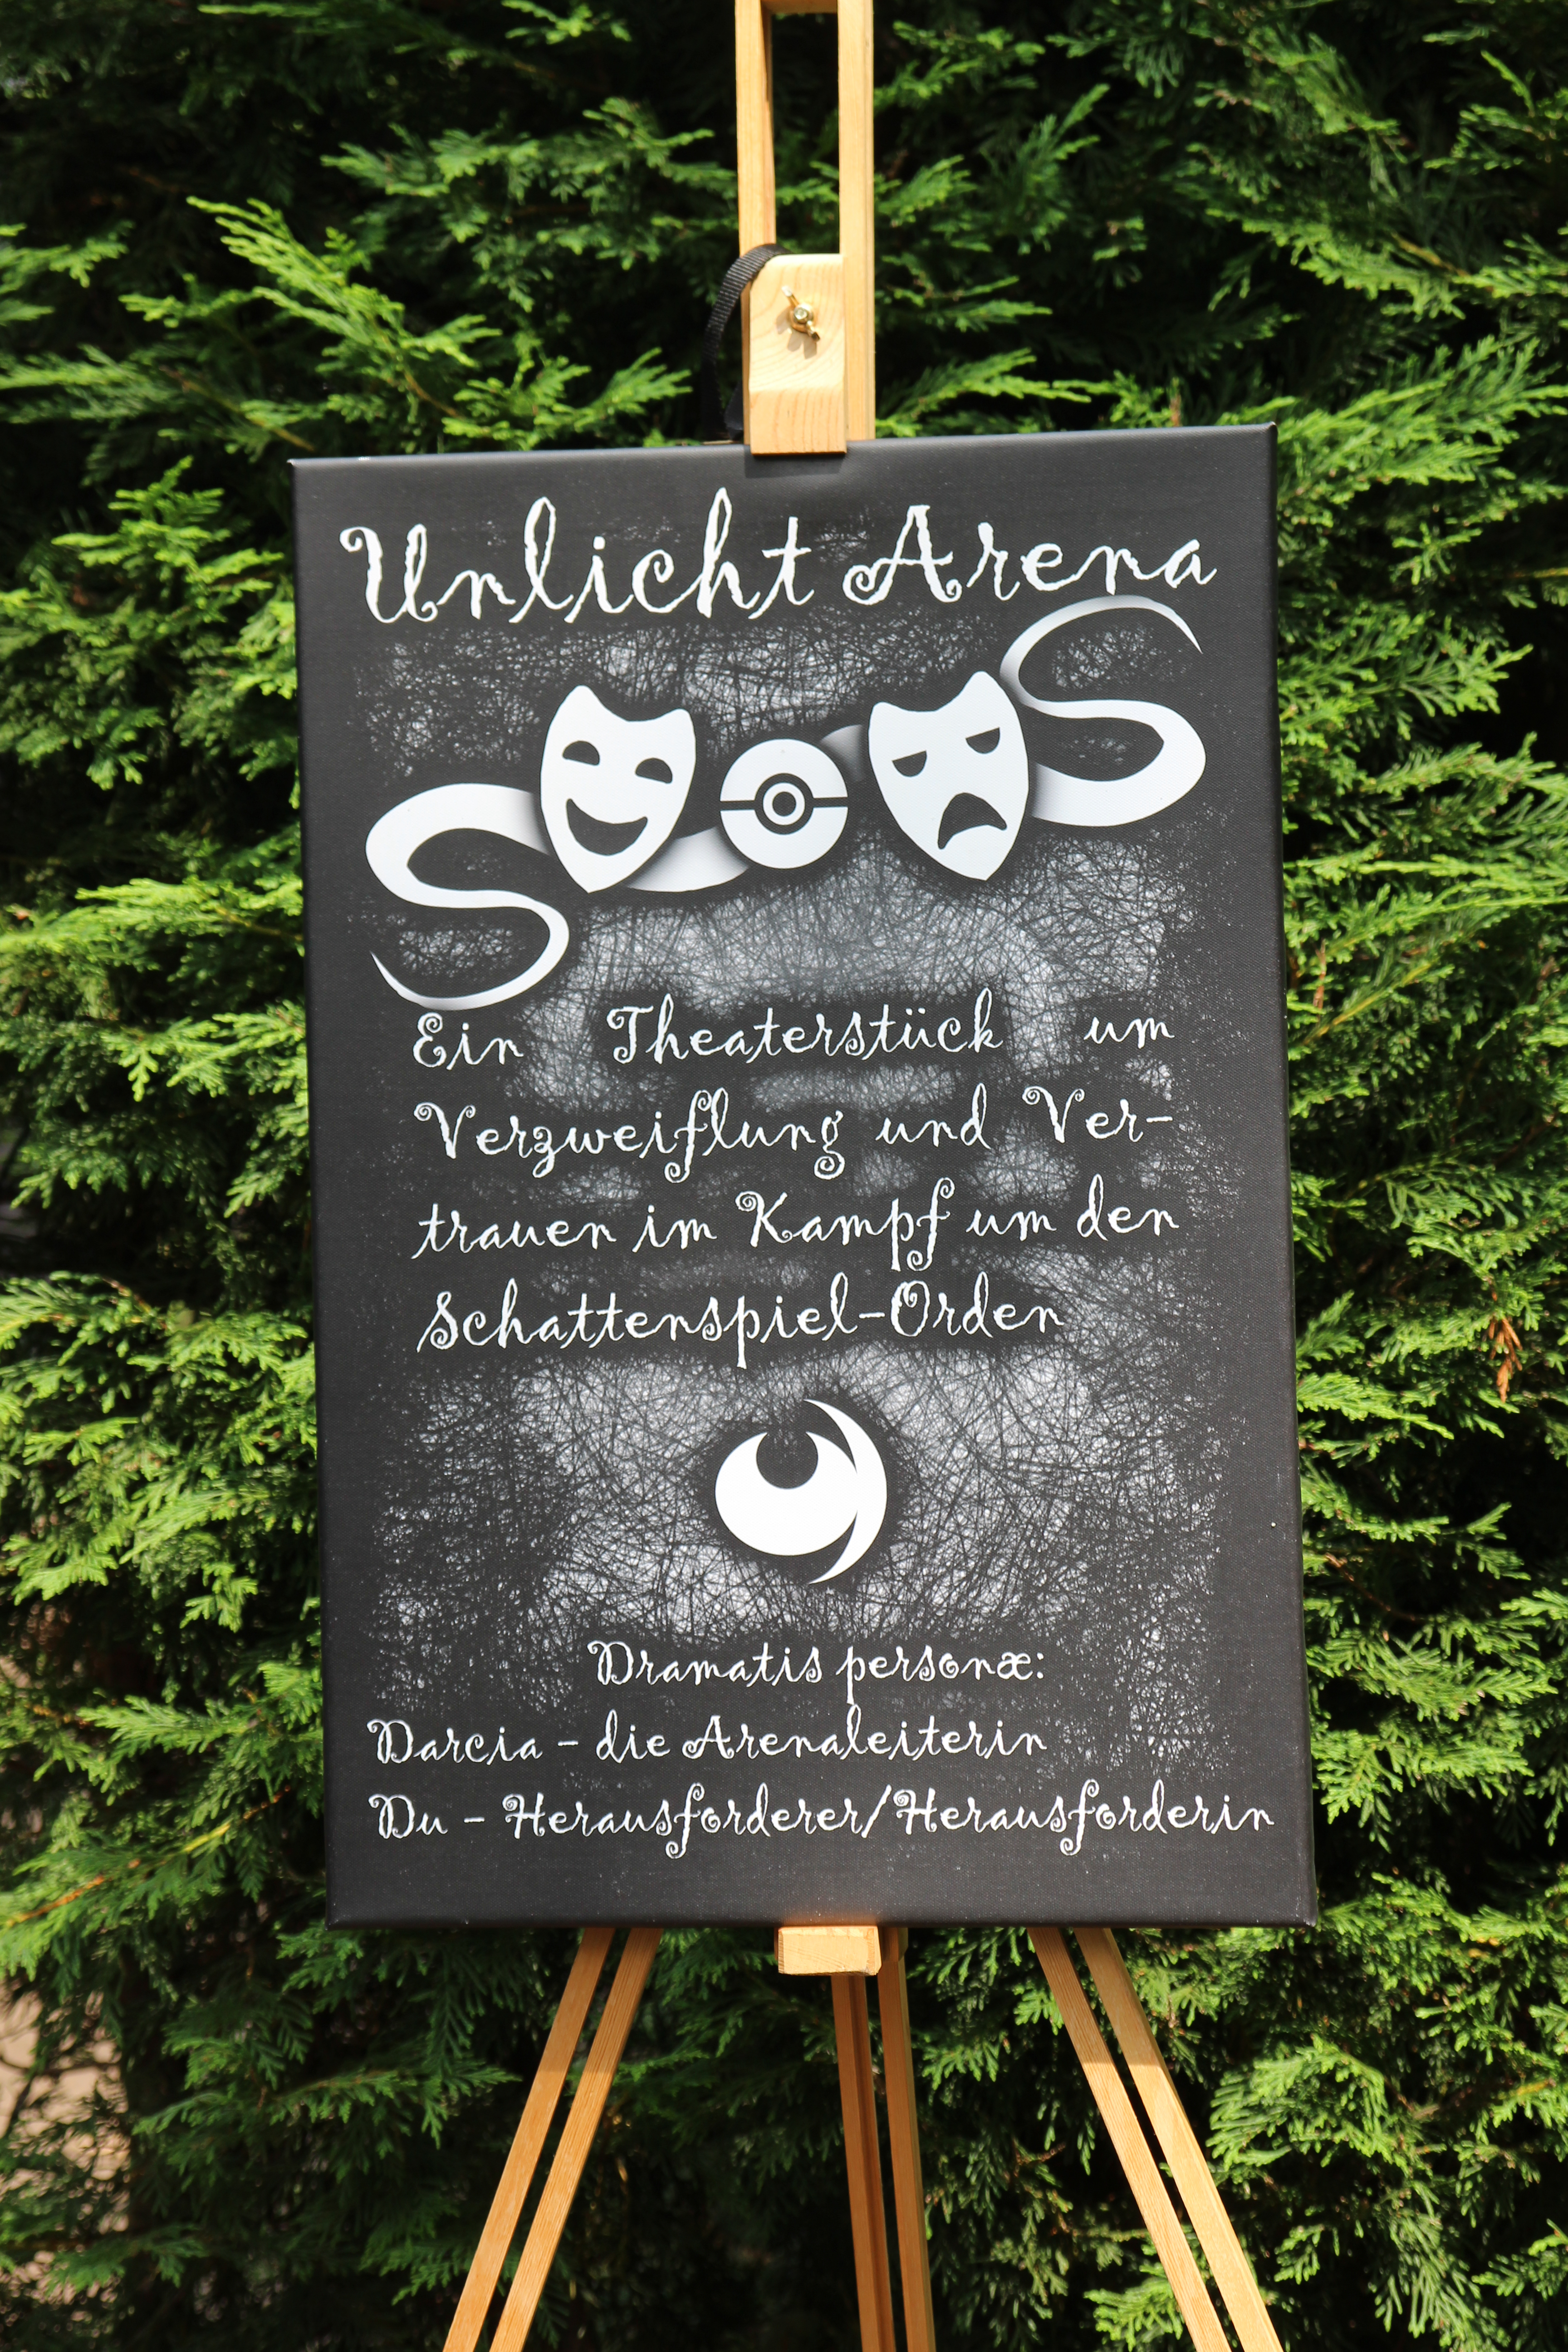 Unlicht Arena
Ein Theaterstück um
Verzweiflung und Ver-
trauen im Kampf um den
Schattenspiel-Orden
Dramatis personæ:
Darcia - die Arenaleiterin
Du - Herausforderer/Herausforderin